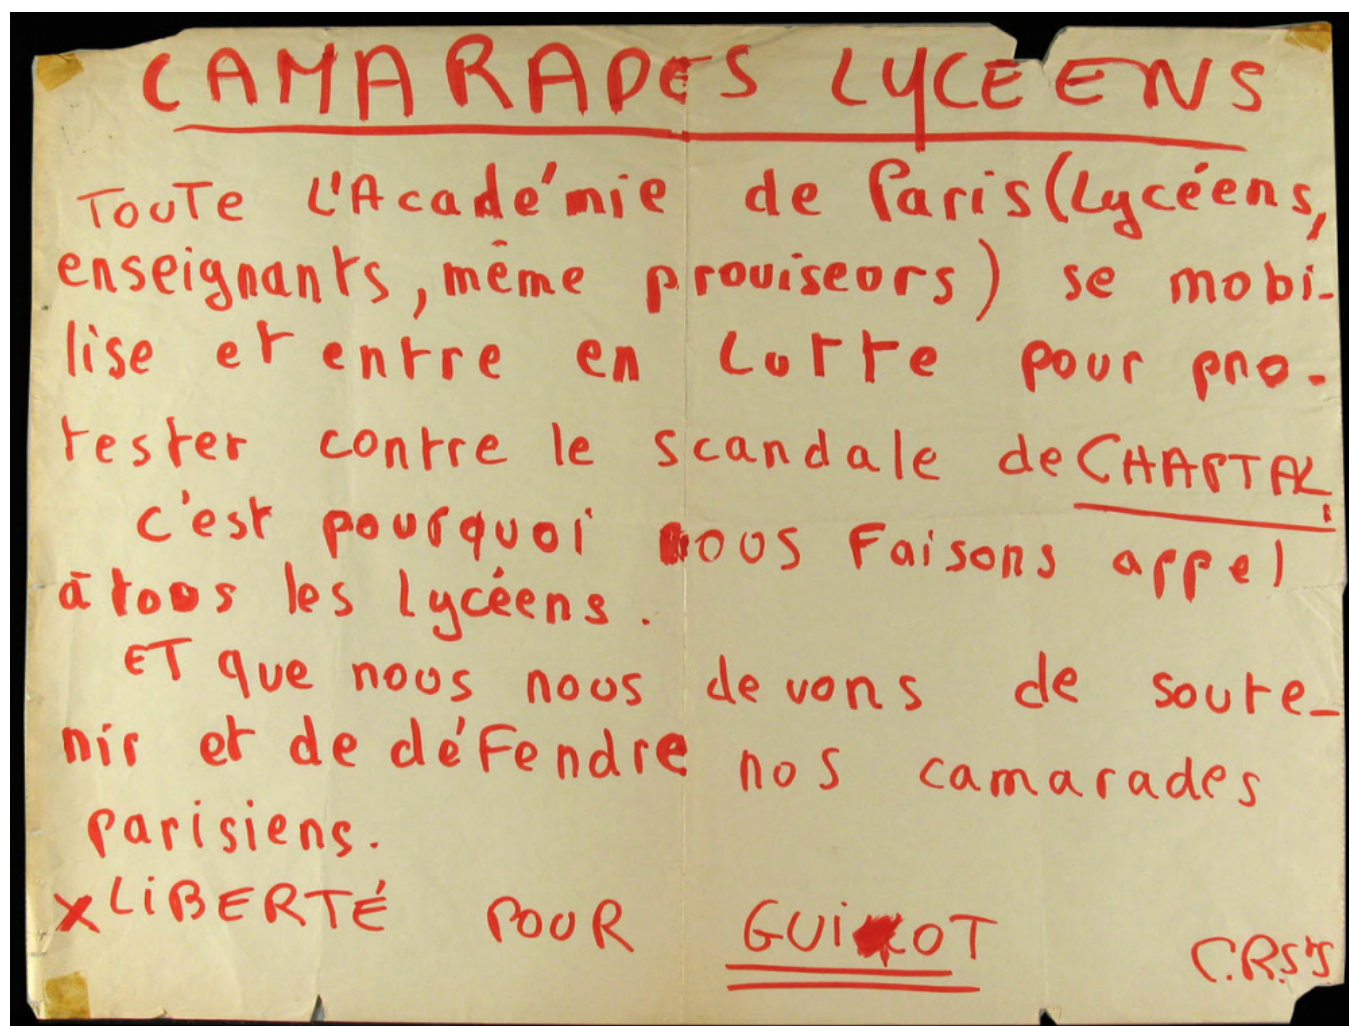 CAMARADES LYCEENS
TOUTE L'Académie de Paris (Lycéens,
enseignants, même proviseurs) se mobi-
lise et entre en Lutte pour pro-
tester contre le scandale de CHAPTAL
c'est pourquoi nous Faisons appel
à tous les Lycéens.
ET que nous nous devons de soute-
nir et de déFendre nos camarades
parisiens.
x LiBERTÉ POUR